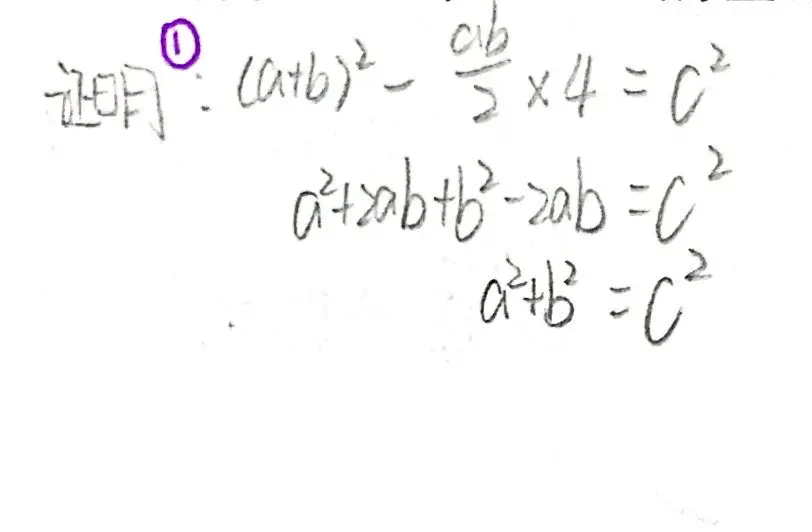 证明①: (a+b)² - ab/2 × 4 = c²
a²+2ab+b²-2ab = c²
a²+b² = c²